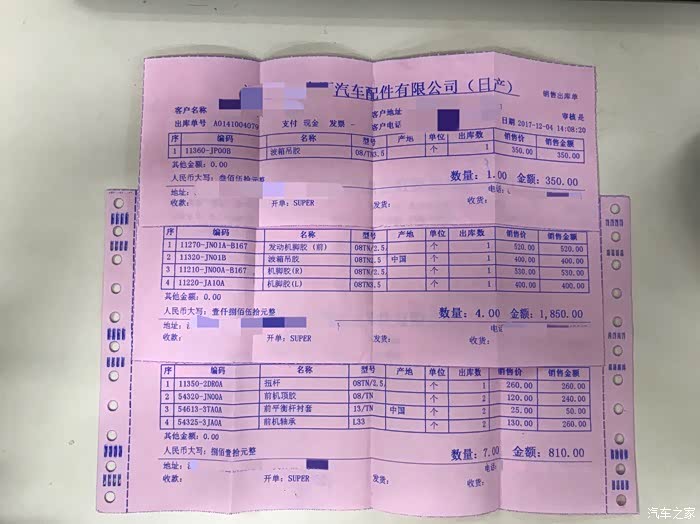 汽车配件有限公司（日产）
销售出库单
客户名称
客户地址
审核 是
出库单号 A0141004079 支付 现金 发票 -
客户电话
日期 2017-12-04 14:08:20
序 编码 名称 型号 产地 单位 出库数 销售价 销售金额
1 11360-JP00B 波箱吊胶 08/TN3.5 个 1 350.00 350.00
其他金额: 0.00
人民币大写: 叁佰伍拾元整 数量: 1.00 金额: 350.00
地址: 电话:
收款: 开单: SUPER 发货: 收货:
序 编码 名称 型号 产地 单位 出库数 销售价 销售金额
1 11270-JN01A-B167 发动机脚胶（前） 08TN/2.5, 个 1 520.00 520.00
2 11320-JN01B 波箱吊胶 08TN2.5 中国 个 1 400.00 400.00
3 11210-JN00A-B167 机脚胶(R) 08TN/2.5, 个 1 530.00 530.00
4 11220-JA10A 机脚胶(L) 08TN3.5 个 1 400.00 400.00
其他金额: 0.00
人民币大写: 壹仟捌佰伍拾元整 数量: 4.00 金额: 1,850.00
地址: 电话
收款: 开单: SUPER 发货: 收货:
序 编码 名称 型号 产地 单位 出库数 销售价 销售金额
1 11350-2DR0A 扭杆 08TN/2.5, 个 1 260.00 260.00
2 54320-JN00A 前机顶胶 08/TN 个 2 120.00 240.00
3 54613-3TA0A 前平衡杆衬套 13/TN 中国 个 2 25.00 50.00
4 54325-3JA0A 前机轴承 L33 个 2 130.00 260.00
其他金额: 0.00
人民币大写: 捌佰壹拾元整 数量: 7.00 金额: 810.00
地址: 电话
收款: 开单: SUPER 发货: 收货:
汽车之家